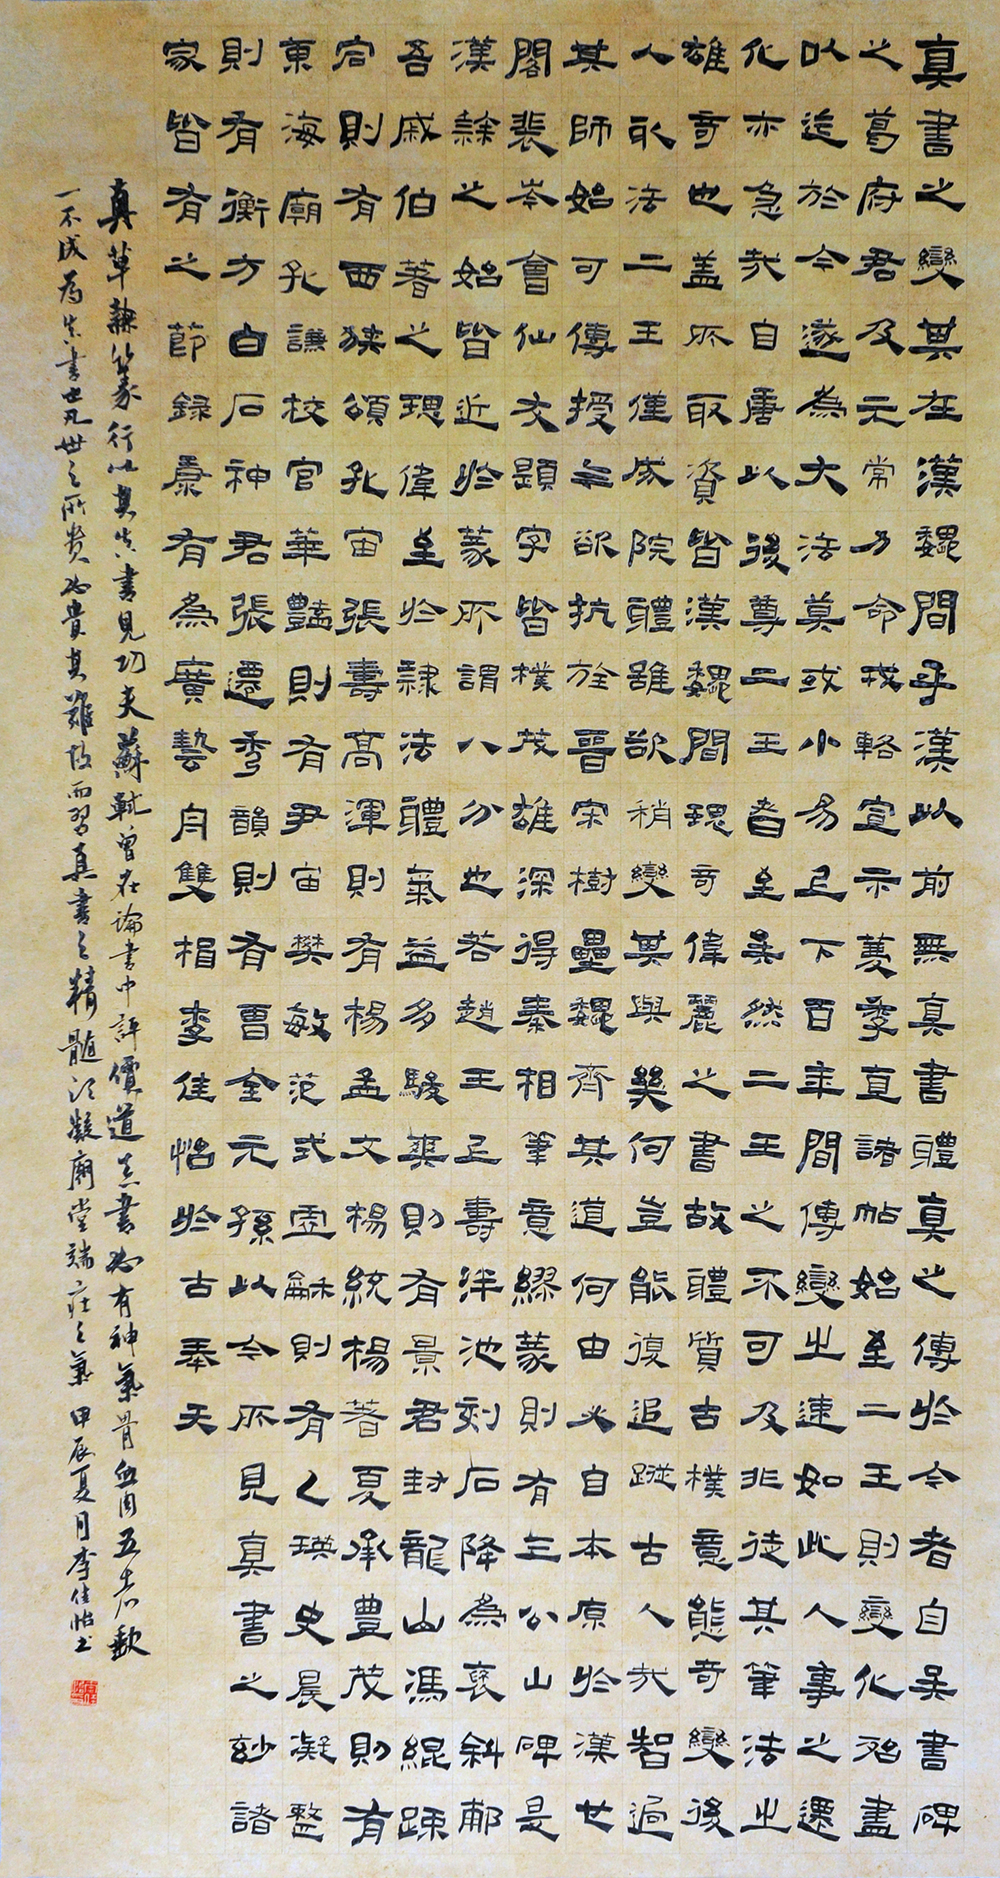 真書之變其在漢魏間乎漢以前無真書體真之傳於今者自吳書碑
之葛府君及元常力命戎輅宣示薦季直諸帖始至二王則變化殆盡
以迄於今遂為大法莫或小易上下百年間傳變之速如此人事之遷
化亦急哉自唐以後尊二王者至矣然二王之不可及非徒其筆法之
雄奇也蓋所取資皆漢魏間瑰奇偉麗之書故體質古樸意態奇變後
人取法二王僅成院體雖欲稍變其與幾何豈能復追蹤古人哉智過
其師始可傳授今欲抗旌晉宋樹壘魏齊其道何由必自本原於漢世
閣裴岑會仙友題字皆樸茂雄深得秦相筆意繆篆則有三公山碑是
漢隸之始皆近於篆所謂八分也若趙王上壽泮池刻石降為褒斜郙
吾戚伯著之瑰偉至於隸法體氣益多駿爽則有景君封龍山馮緄疎
宕則有西狹頌孔宙張壽高渾則有楊孟文楊統楊著夏承豐茂則有
東海廟孔謙校官華豔則有尹宙樊敏范式虛龢則有乙瑛史晨凝整
則有衡方白石神君張遷秀韻則有曹全元孫以今所見真書之妙諸
家皆有之節錄康有為廣藝舟雙楫李佳怡於古奉天
真草隸篆行以其真書見功夫蘇軾曾在論書中評價道真書必有神氣骨血肉五者闕
一不成為真書也凡世之所貴必貴其難故而習真書之精髓須凝廟堂端莊之氣 甲辰夏月李佳怡書